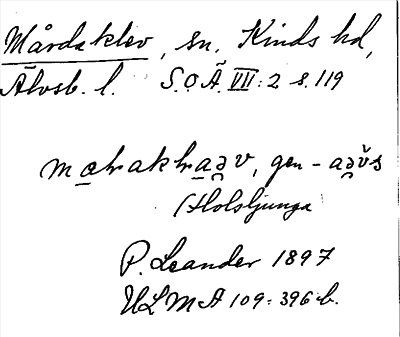 Mårdaklev, sn, Kinds hd,
Älvsb. l. S.O.Ä. VII: 2 s. 119
gen -
(Holsljunga
P. Leander 1897
ULMA 109: 396: b.